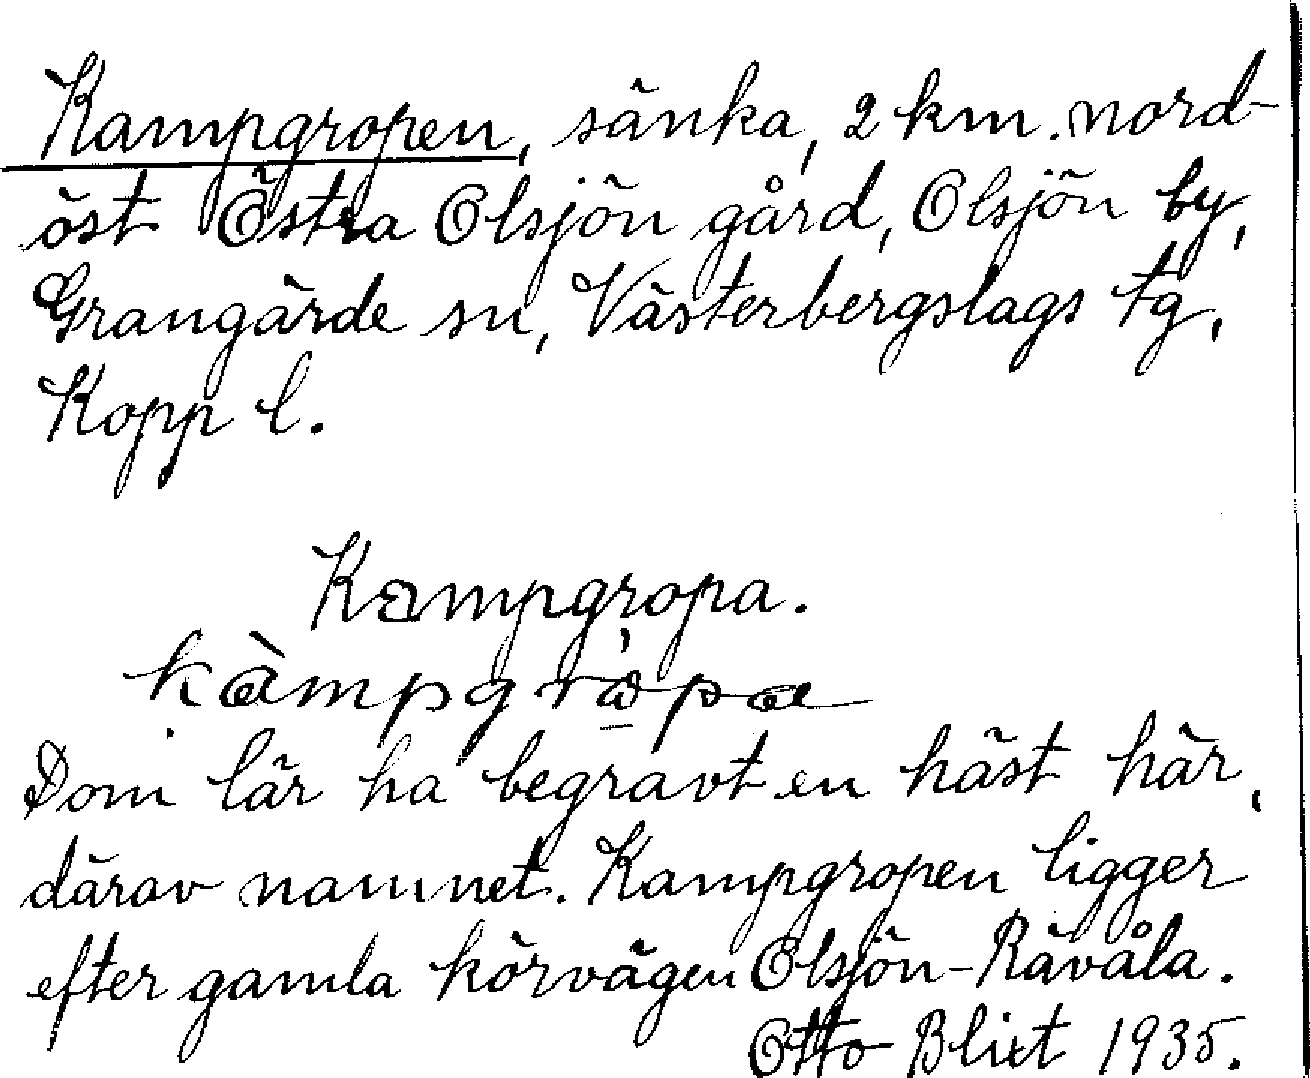 Kampgropen, sänka, 2 km. nord-
öst Östra Olsjön gård, Olsjön by,
Grangärde sn, Västerbergslags tg,
Kopp l.
Kampgropa.
kàmpgrò̱pa
Dom lär ha begravt en häst här,
därav namnet. Kampgropen ligger
efter gamla körvägen Olsjön-Rävåla.
Otto Blixt 1935.